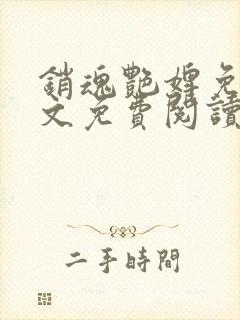 銷魂艷婢免
文免費閱讀
二手時間